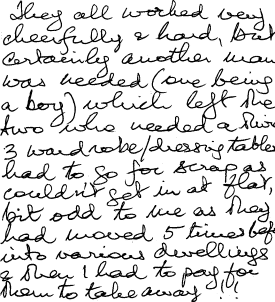 They all worked very
cheerfully & hard, but
certainly another man
was needed (one being
a boy) which left the
two who needed a
3 wardrobe/dressing tables
had to go for scrap as
couldn't get in at that,
bit odd to me as they
had moved 5 times
into various dwellings
& then I had to pay for
them to take away !!